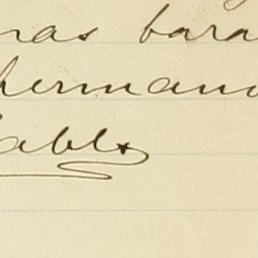 mas bara
hermano
Pablo